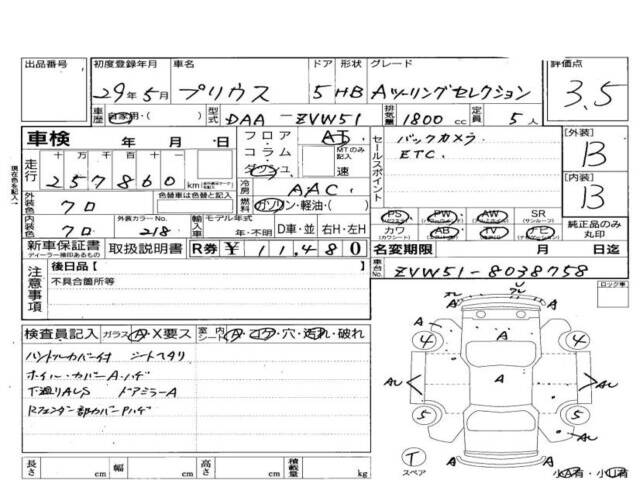 出品番号 初度登録年月 車名 ドア 形状 グレード 評価点
29年5月 プリウス 5 HB Aツーリングセレクション 3.5
車歴 自家用・( ) 型式 DAA-ZVW51 排気量 1800cc 定員 5人
車検 年 月 日
フロア AT
コラム MTのみ記入
ダッシュ 速
セールスポイント バックカメラ
ETC.
[外装] B
[内装] B
現在色を記入
走行 十万 万 千 百 十
257860 km
冷房 AAC
外装色 クロ 色替車は色替と記入
燃料 ガソリン・軽油・( )
内装色 クロ 外装カラーNo. 218
輸入車 モデル年式 年・不明 D車・並 右H・左H
PS PW AW SR
(パワステ) (サンルーフ)
カワ AB TV ナビ
(カワシート)
純正品のみ丸印
新車保証書 取扱説明書 R券 ¥11,480
ディーラー捺印あるもの
名変期限 月 日迄
車台No. ZVW51-8038758
注意事項 後日品[ ]
不具合箇所等
ロック車
検査員記入 ガラス A・X要ス 室内シート A・コゲ・穴・汚れ・破れ
ハンドルカバー付 シートスタリ
ホイル・カバーA・ハゲ
下廻りAUS ドアミラーA
Rフェンダー部カバーPハゲ
A A
4 A 4
AU A AU
5 5
AU
A A A
T
スペア
小A有・小U有
長さ cm 幅 cm 高さ cm 積載量 kg